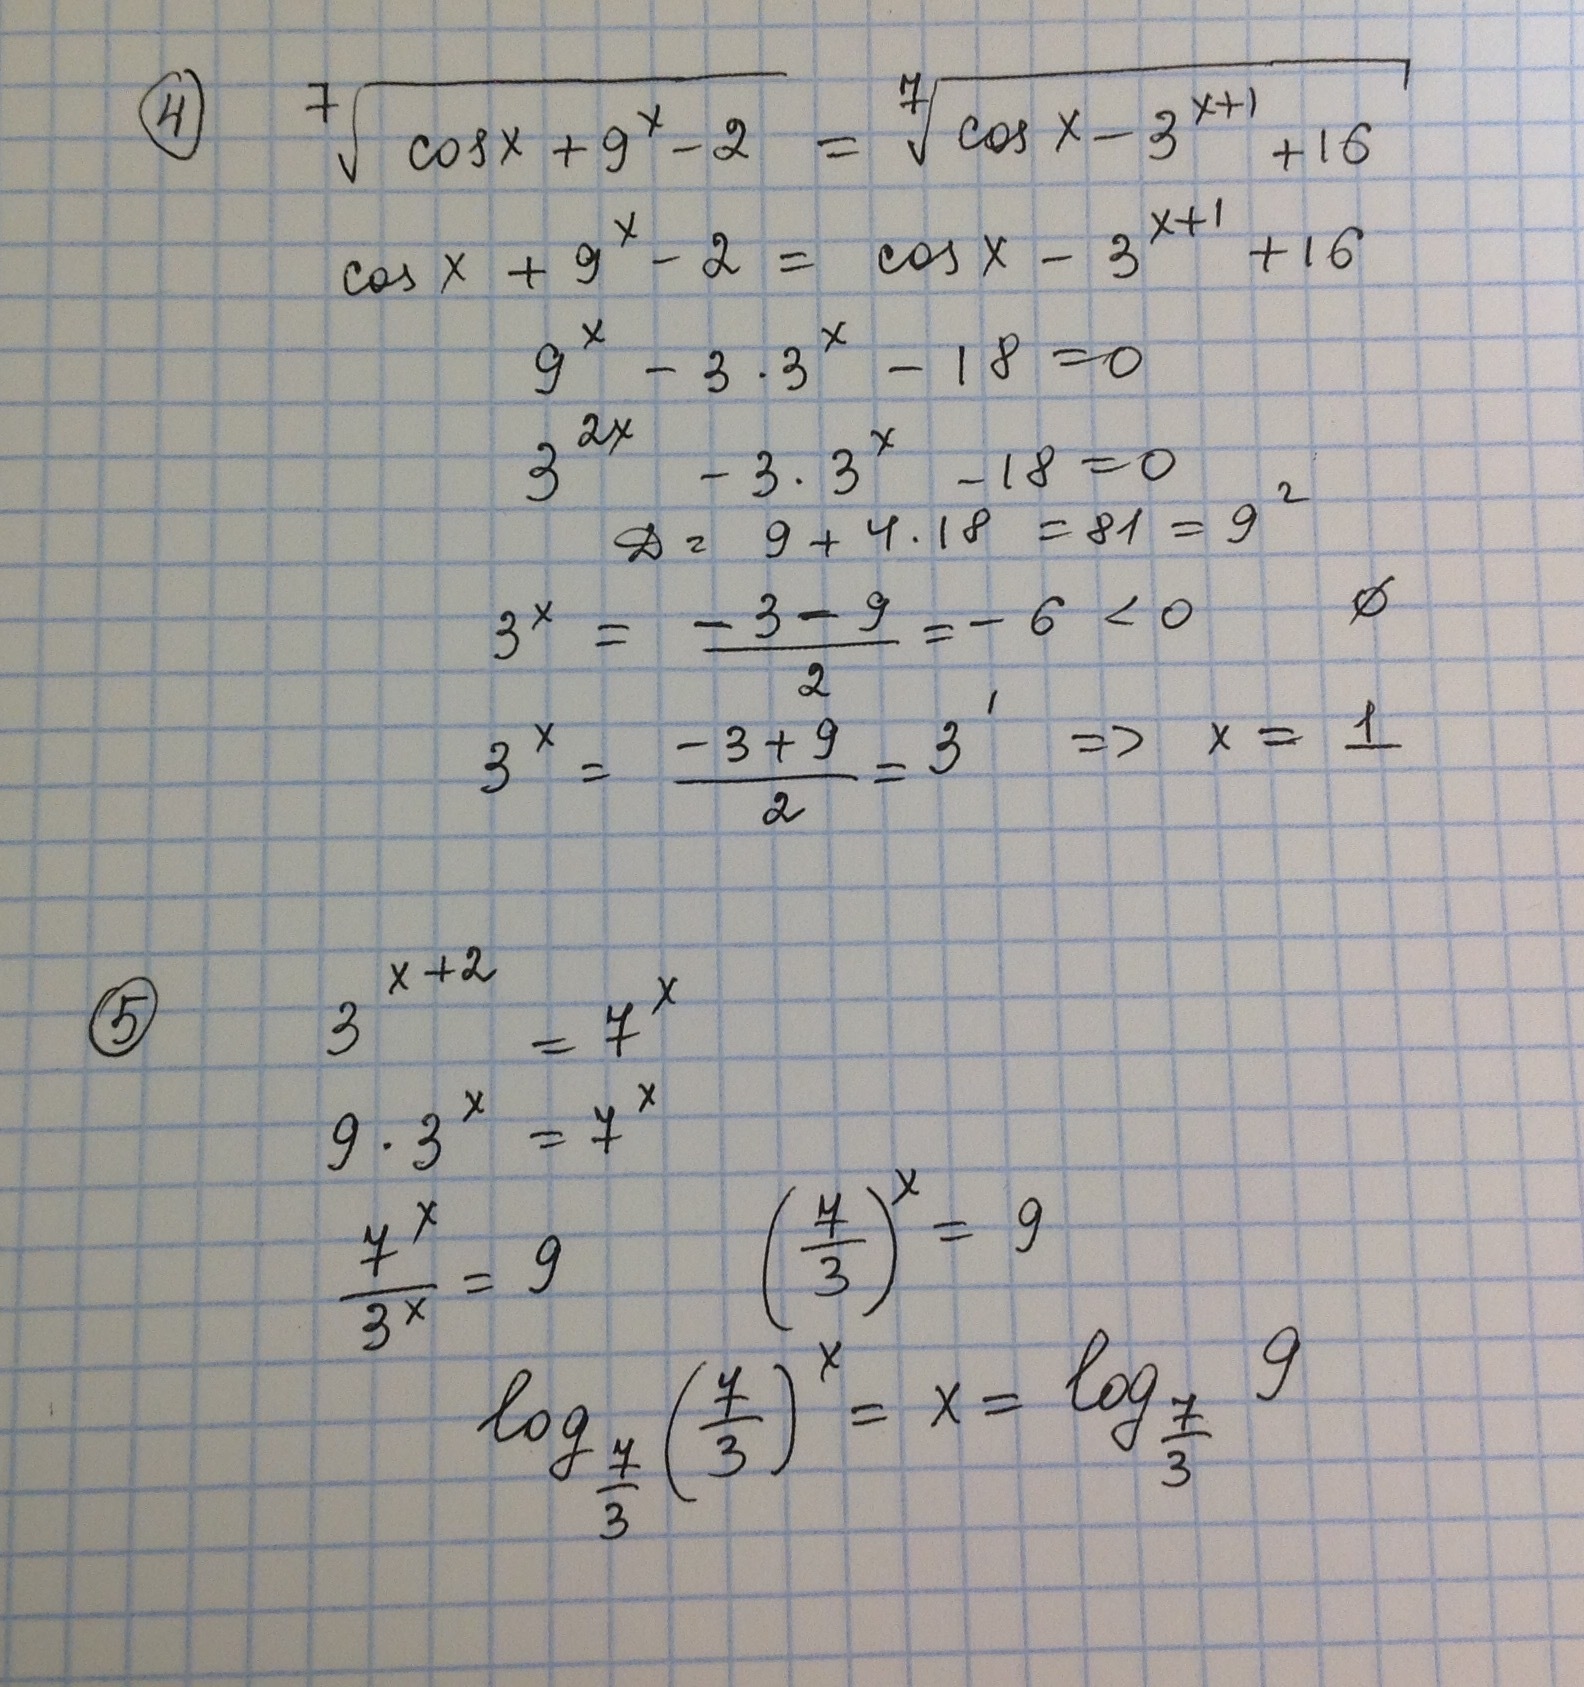 ④ ⁷√(cos x + 9^x − 2) = ⁷√(cos x − 3^(x+1) + 16)
cos x + 9^x − 2 = cos x − 3^(x+1) + 16
9^x − 3·3^x − 18 = 0
3^(2x) − 3·3^x − 18 = 0
D = 9 + 4·18 = 81 = 9²
3^x = (−3−9)/2 = −6 < 0 ∅
3^x = (−3+9)/2 = 3^1 => x = 1
⑤ 3^(x+2) = 7^x
9·3^x = 7^x
7^x/3^x = 9 (7/3)^x = 9
log_(7/3) (7/3)^x = x = log_(7/3) 9